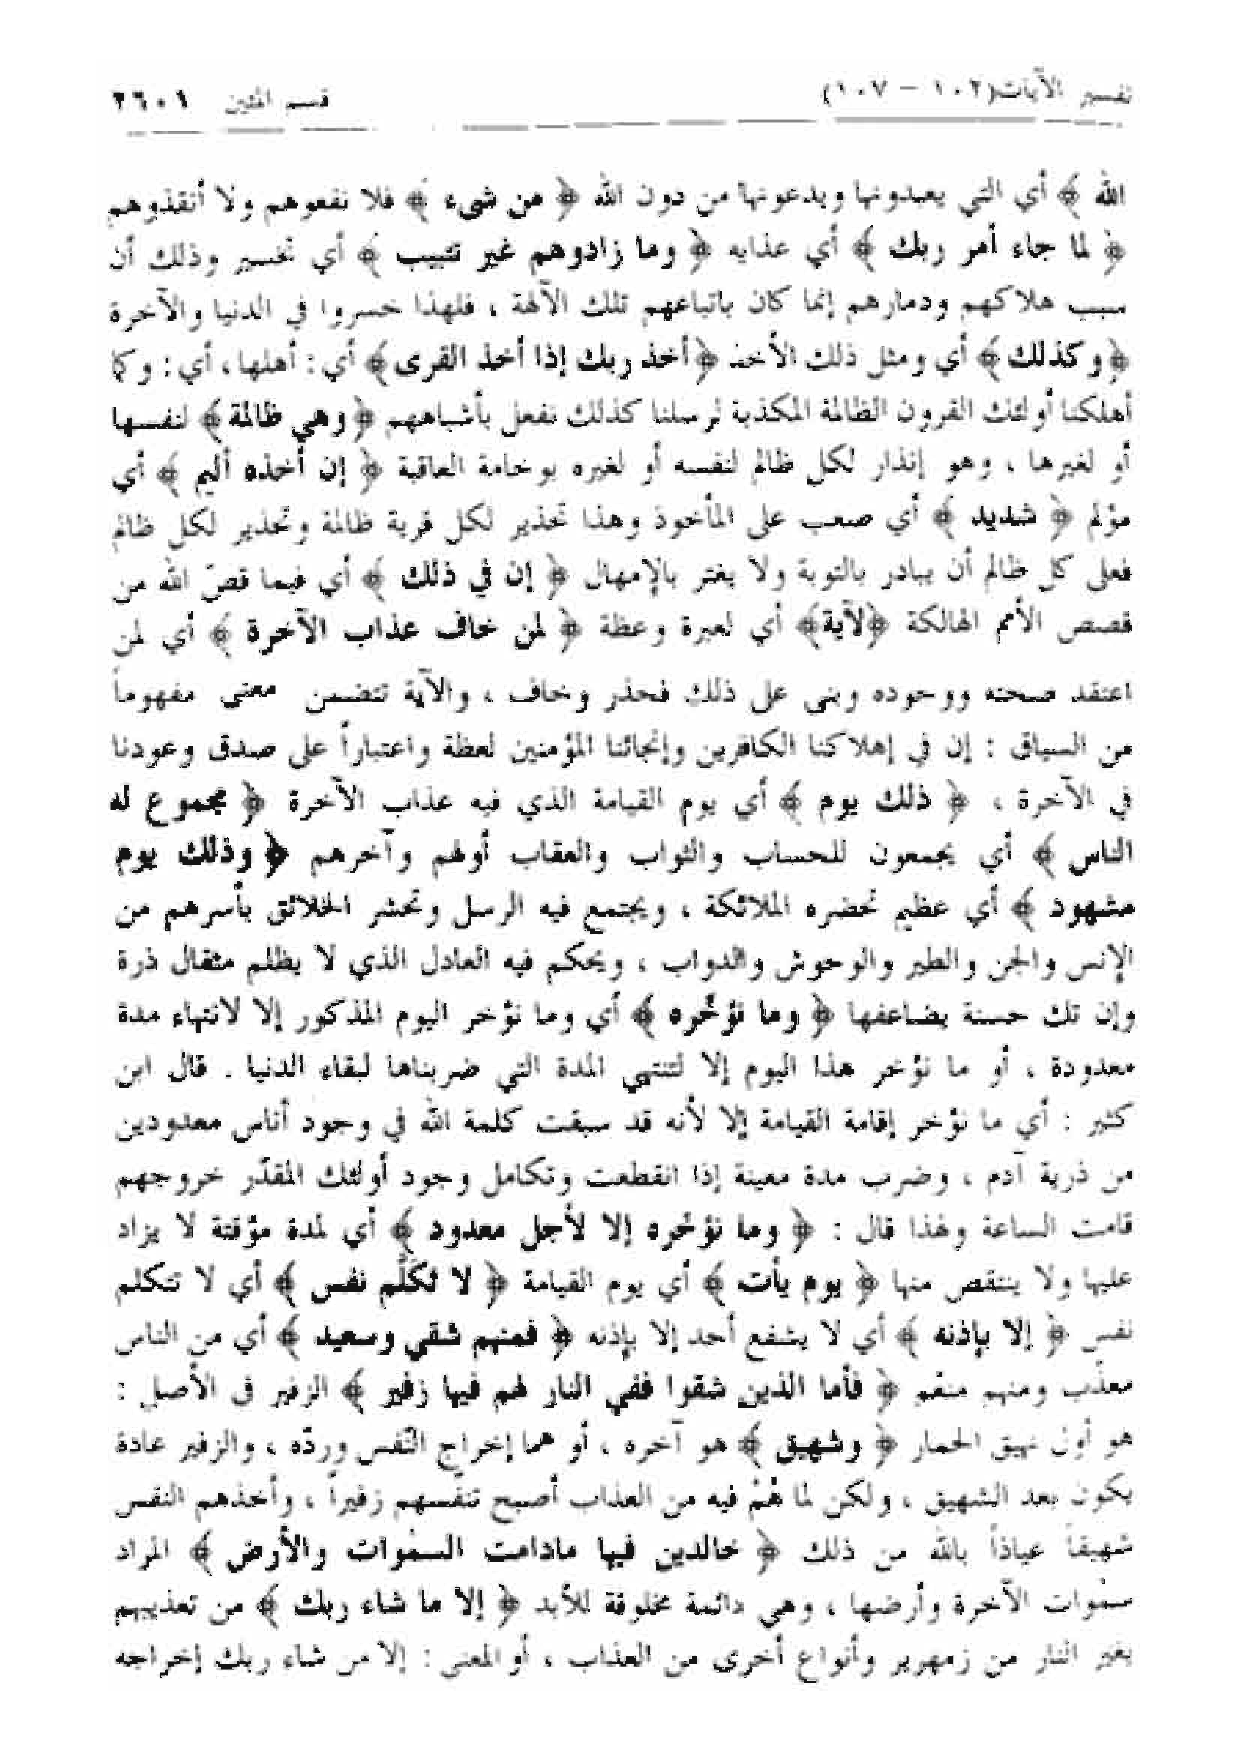 تفسير الآيات (١٠٢ – ١٠٧) قسم المئين ٢٦٠٩
الله ﴾ أي التي يعبدونها ويدعونها من دون الله ﴿ من شيء ﴾ فلا نفعوهم ولا أنقذوهم
﴿ لما جاء أمر ربك ﴾ أي عذابه ﴿ وما زادوهم غير تتبيب ﴾ أي تخسير وذلك أن
سبب هلاكهم ودمارهم إنما كان باتباعهم تلك الآلهة ، فلهذا خسروا في الدنيا والآخرة
﴿ وكذلك ﴾ أي ومثل ذلك الأخذ ﴿ أخذ ربك إذا أخذ القرى ﴾ أي : أهلها ، أي : وكما
أهلكنا أولئك القرون الظالمة المكذبة لرسلنا كذلك نفعل بأشباههم ﴿ وهي ظالمة ﴾ لنفسها
أو لغيرها ، وهو إنذار لكل ظالم لنفسه أو لغيره بوخامة العاقبة ﴿ إن أخذه أليم ﴾ أي
مؤلم ﴿ شديد ﴾ أي صعب على المأخوذ وهذا تحذير لكل قرية ظالمة وتحذير لكل ظالم
فعلى كل ظالم أن يبادر بالتوبة ولا يغتر بالإمهال ﴿ إن في ذلك ﴾ أي فيما قصّ الله من
قصص الأمم الهالكة ﴿ لآية ﴾ أي لعبرة وعظة ﴿ لمن خاف عذاب الآخرة ﴾ أي لمن
اعتقد صحته ووجوده وبنى على ذلك فحذر وخاف ، والآية تتضمن معنى مفهوماً
من السياق : إن في إهلاكنا الكافرين وإنجائنا المؤمنين لعظة واعتباراً على صدق وعودنا
في الآخرة ، ﴿ ذلك يوم ﴾ أي يوم القيامة الذي فيه عذاب الآخرة ﴿ مجموع له
الناس ﴾ أي يجمعون للحساب والثواب والعقاب أولهم وآخرهم ﴿ وذلك يوم
مشهود ﴾ أي عظيم تحضره الملائكة ، ويجتمع فيه الرسل وتحشر الخلائق بأسرهم من
الإنس والجن والطير والوحوش والدواب ، ويحكم فيه العادل الذي لا يظلم مثقال ذرة
وإن تك حسنة يضاعفها ﴿ وما نؤخّره ﴾ أي وما نؤخر اليوم المذكور إلا لانتهاء مدة
معدودة ، أو ما نؤخر هذا اليوم إلا لتنتهي المدة التي ضربناها لبقاء الدنيا . قال ابن
كثير : أي ما نؤخر إقامة القيامة إلا لأنه قد سبقت كلمة الله في وجود أناس معدودين
من ذرية آدم ، وضرب مدة معينة إذا انقطعت وتكامل وجود أولئك المقدّر خروجهم
قامت الساعة ولهذا قال : ﴿ وما نؤخّره إلا لأجل معدود ﴾ أي لمدة مؤقتة لا يزاد
عليها ولا ينتقص منها ﴿ يوم يأت ﴾ أي يوم القيامة ﴿ لا تكلّم نفس ﴾ أي لا تتكلم
نفس ﴿ إلا بإذنه ﴾ أي لا يشفع أحد إلا بإذنه ﴿ فمنهم شقي وسعيد ﴾ أي من الناس
معذّب ومنهم منعّم ﴿ فأما الذين شقوا ففي النار لهم فيها زفير ﴾ الزفير في الأصل :
هو أول نهيق الحمار ﴿ وشهيق ﴾ هو آخره ، أو هما إخراج النّفس وردّه ، والزفير عادة
يكون بعد الشهيق ، ولكن لما هُمْ فيه من العذاب أصبح تنفّسهم زفيراً ، وأخذهم النفس
شهيقاً عياذاً بالله من ذلك ﴿ خالدين فيها مادامت السمٰوات والأرض ﴾ المراد
سمٰوات الآخرة وأرضها ، وهي دائمة مخلوقة للأبد ﴿ إلا ما شاء ربك ﴾ من تعذيبهم
بغير النار من زمهرير وأنواع أخرى من العذاب ، أو المعنى : إلا من شاء ربك إخراجه